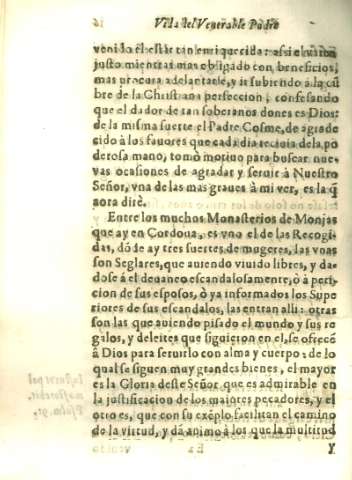 Vida del Venerable Padre
venido él estar tan enriquecida: assi el varon
justo mientras mas obligado con beneficios,
mas procura adelantarle, y ir subiendo á la cũ
bre de la Christiana perfeccion, confesando
que el dador de tan soberanos dones es Dios:
de la misma suerte el Padre Cosme, de agrade
cido à los fauores que cada dia recíuia de la po
derosa mano, tomò motiuo para buscar nue-
vas ocasiones de agradar y seruir à Nuestro
Señor, vna de las mas graues à mi ver, es la q̃
aora dirè.
Entre los muchos Monasterios de Monjas
que ay en Cordoua, es vno el de las Recogi-
das, dóde ay tres suertes de mugeres, las vnas
son Seglares, que auiendo viuido libres, y da-
dose á el deuaneo escandalosamente, ò à peti-
cion de sus esposos, ò ya informados los Supe
riores de sus escandalos, las entran alli: otras
son las que auiendo pisado el mundo y sus re
galos, y deleites que siguieron en el, se ofrecẽ
à Dios para seruirlo con alma y cuerpo: de lo
qual se siguen muy grandes bienes, el mayor
es la Gloria deste Señor, que es admirable en
la justificacion de los maiores pecadores, y el
otro es, que con su exẽplo facilitan el camino
de la virtud, y dá animo à los que la multitud
y